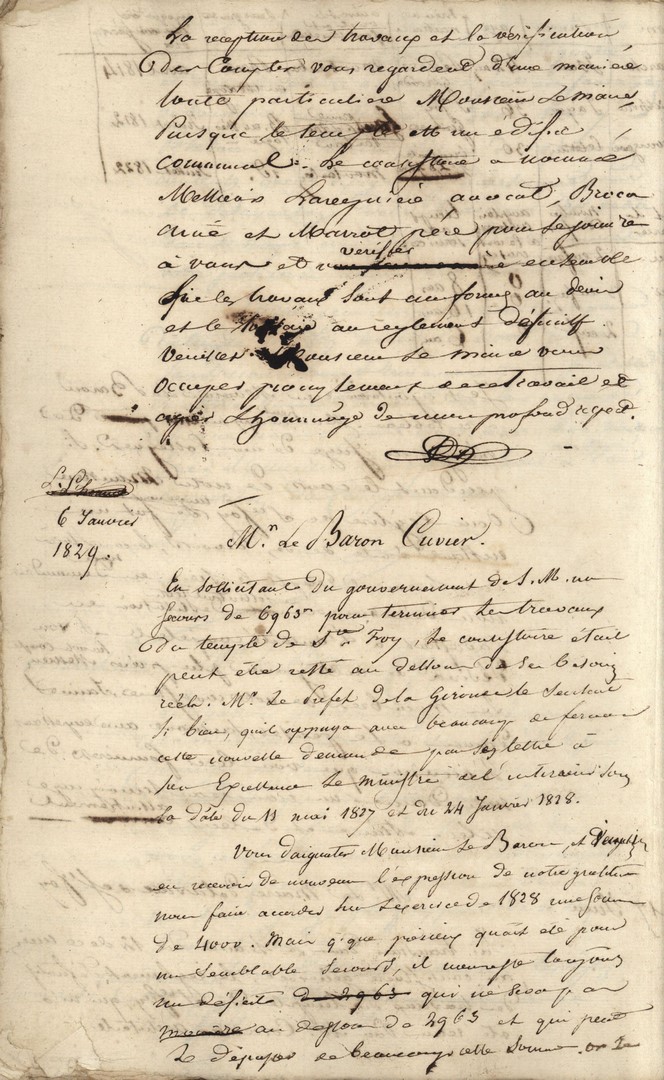 La reception des travaux et la vérification
Des Comptes vous regardent d'une manière
toute particulière Monsieur Le Maire,
Puisque le temple est un édifice
communal. Le consistoire a nommé
Messieurs Laregnère avocat, Broca
ainé et Marrot père pour se joindre
à vous et vérifier ensemble
si les travaux sont conformes au devis
et le au reglement définitif
Veuillez Monsieur Le maire vous
occuper promptement de ce travail et
agréer L'hommage de mon profond respect.
6 Janvier
1829.
Mr. Le Baron Cuvier.
En sollicitant du gouvernement de S. M. un
secours de 6963 pour terminer les travaux
du temple de Ste Foy, Le consistoire était
peut être resté au dessous de ses besoins
réels. Mr. Le Prefet de la Gironde le sentait
si bien, qu'il appuya avec beaucoup de ferveur
cette nouvelle demande par ses lettre à
son Excellence Le Ministre de l'intérieur sous
La date du 11 mai 1827 et du 24 Janvier 1828.
Vous daignates Monsieur Le Baron, et
en recevoir de nouveau l'expression de notre gratitude
nous faire accorder sur L'exercice de 1828 une somme
de 4000. Mais q. que précieux qu'ait été pour
un semblable secours, il nous reste toujours
un déficit de 2963 qui ne sera pas
au dessous de 2963 et qui peut
de beaucoup cette somme. or Le